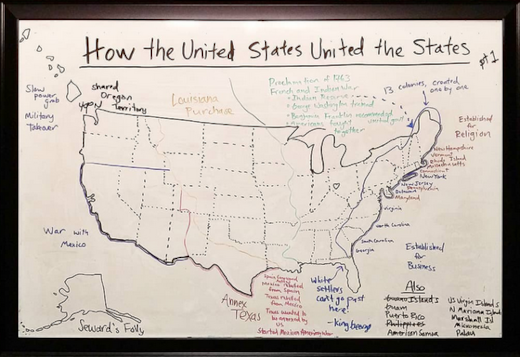 How the United States United the States
pt 1
Slow
power
grab
Military
Takeover
Shared
Oregon
Territory
Louisiana
Purchase
Proclamation of 1763
French and Indian War
• Indian Reserve
• George Washington trained
• Benjamin Franklin recommended
Americans fought
together
13 colonies, created
one by one
Established
for
Religion
New Hampshire
Vermont
Rhode Island
Massachusetts
New York
New Jersey
Pennsylvania
Delaware
Maryland
Virginia
North Carolina
South Carolina
Georgia
War with
Mexico
Established
for
Business
Mexico rebelled
from Spain
Texas rebelled
from Mexico
Texas wanted to
be annexed by
US
Started Mexican American War
Annex
Texas
White
settlers
can't go past
here!
- King George
Seward's Folly
Also
Guam
Puerto Rico
Philippines
American Samoa
US Virgin Islands
N Mariana Islands
Marshall Isl
Micronesia
Palau